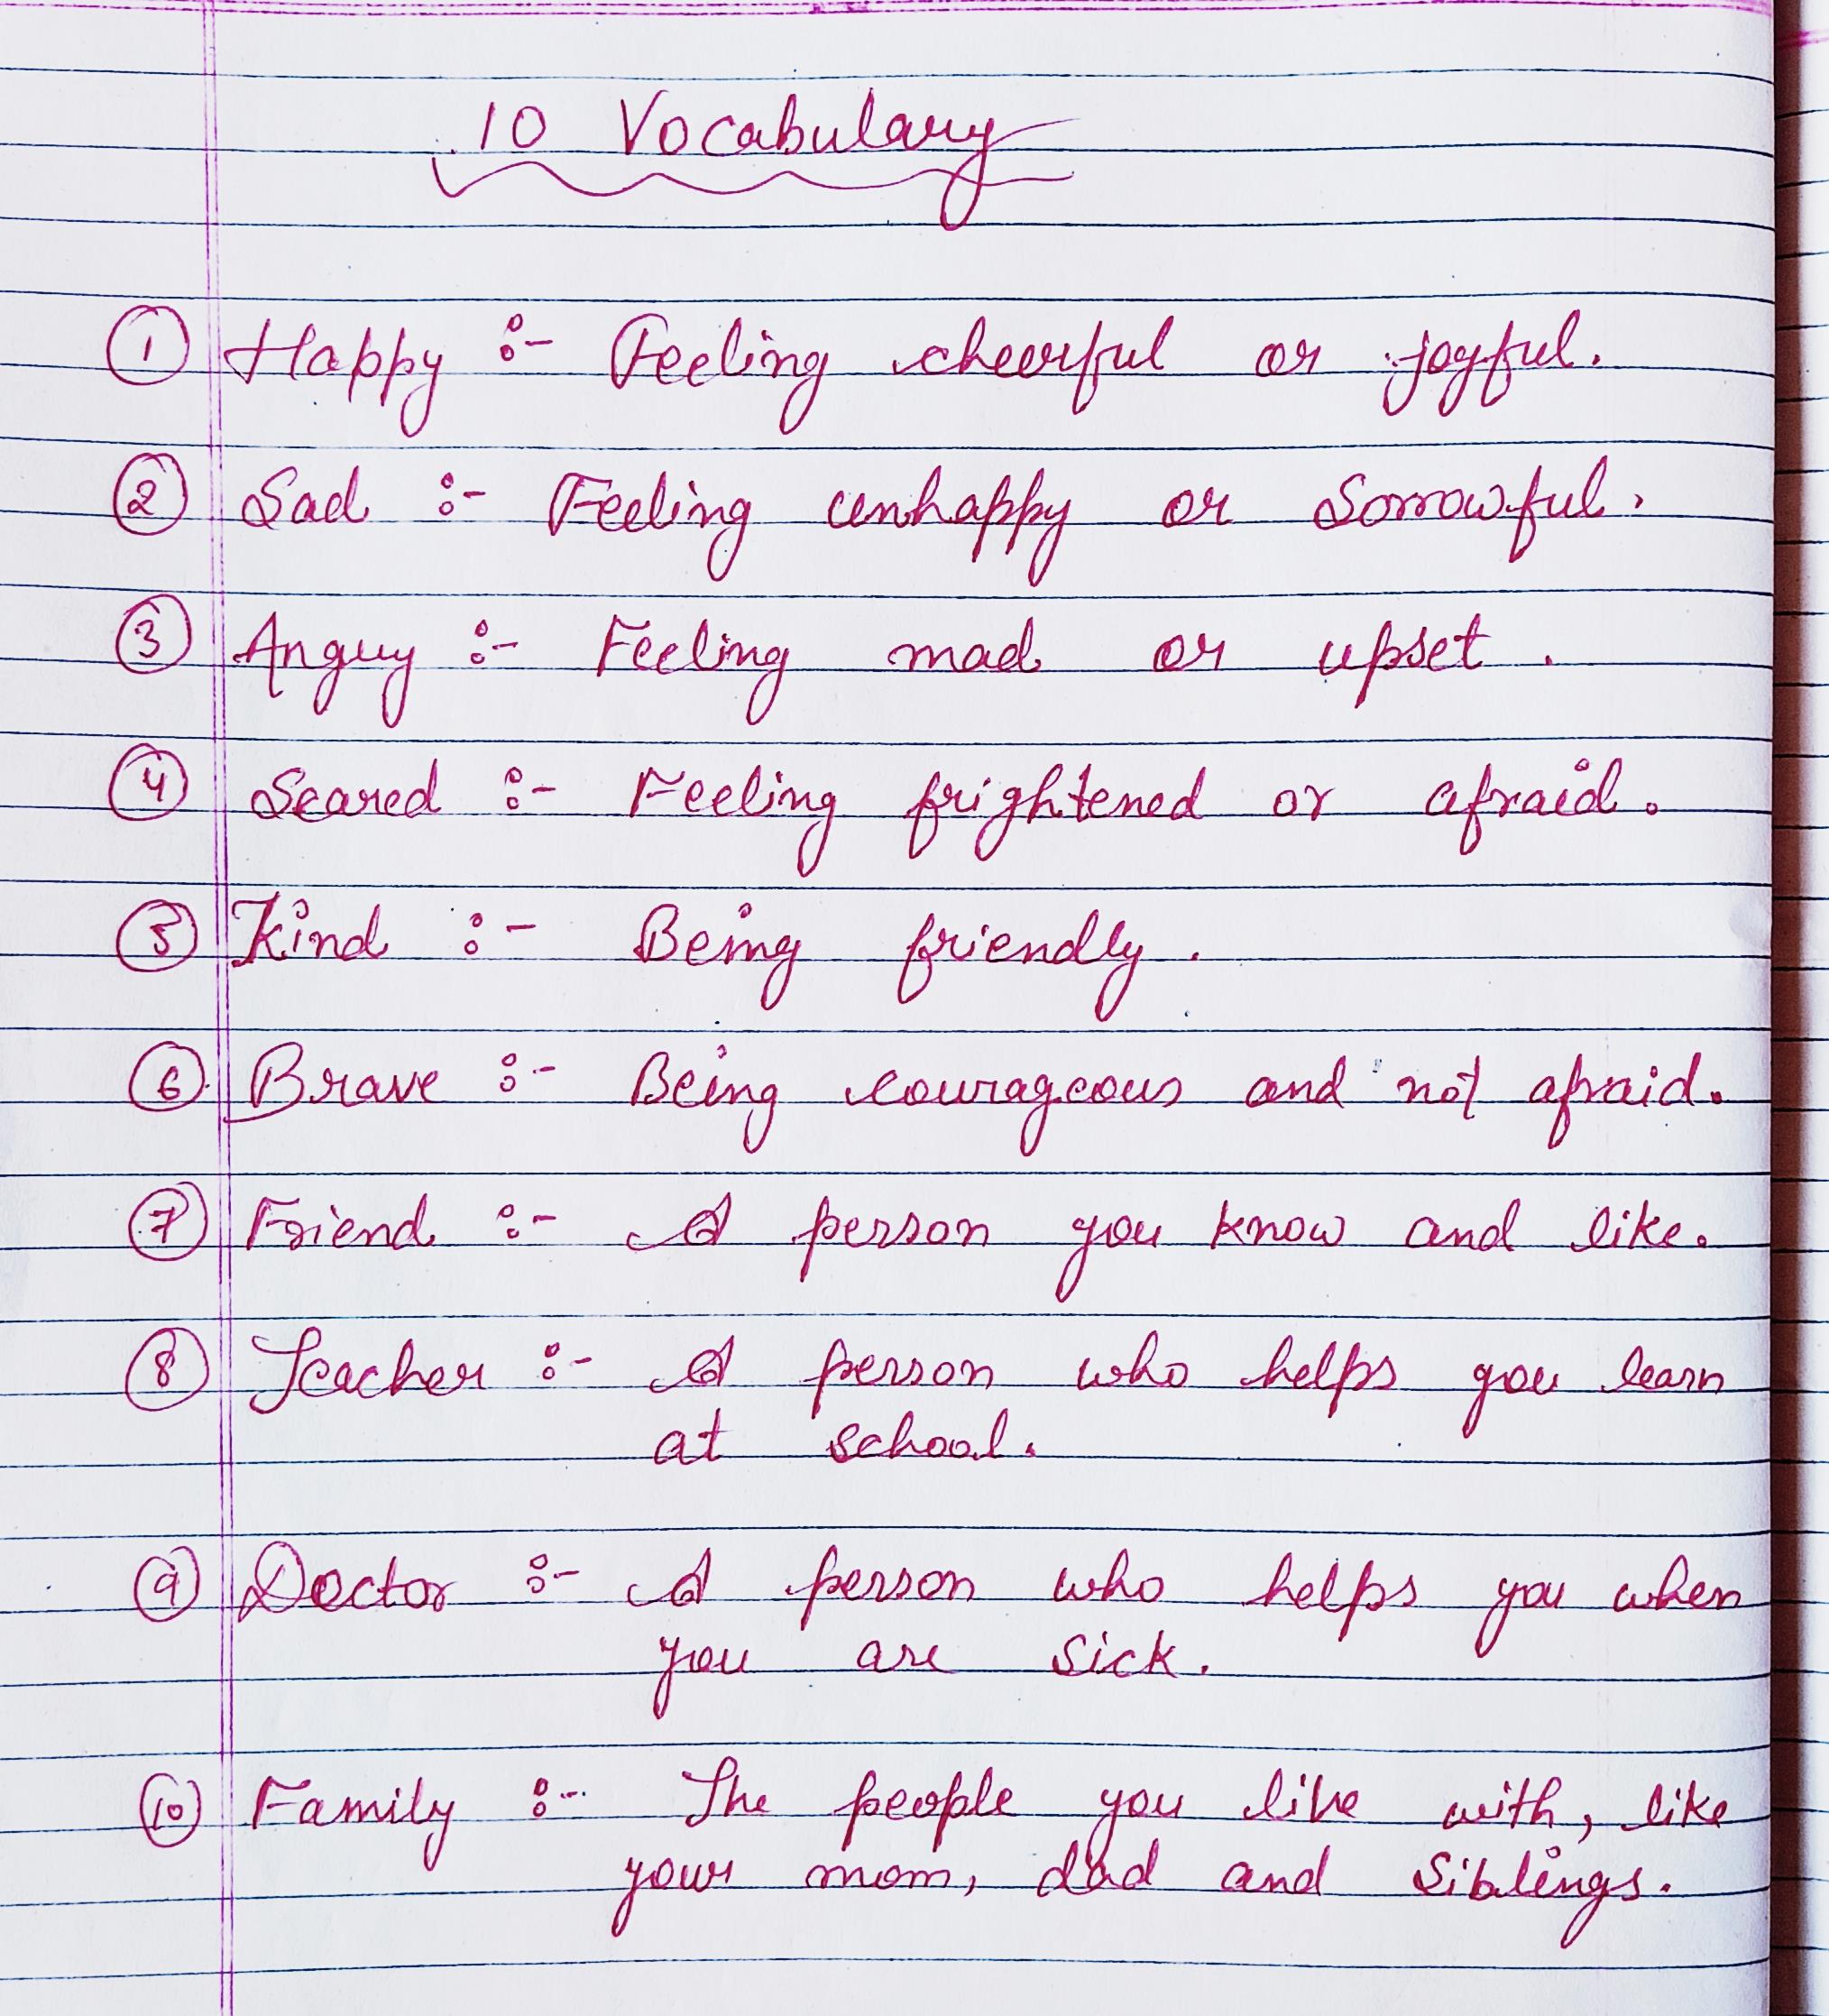 10 Vocabulary
① Happy :- Feeling cheerful or joyful.
② Sad :- Feeling unhappy or Sorrowful.
③ Angry :- Feeling mad or upset.
④ Scared :- Feeling frightened or afraid.
⑤ Kind :- Being friendly.
⑥ Brave :- Being courageous and not afraid.
⑦ Friend :- A person you know and like.
⑧ Teacher :- A person who helps you learn
at school.
⑨ Doctor :- A person who helps you when
you are sick.
⑩ Family :- The people you live with, like
your mom, dad and siblings.